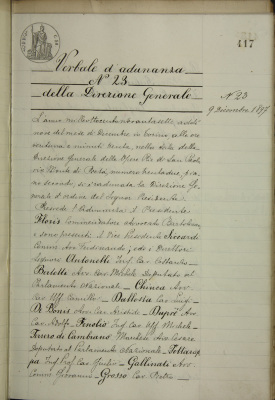 117
Verbale d'adunanza
N° 23
della Direzione Generale
N. 23
9 Dicembre 1897
L'anno milleottocentonovantasette, addì
nove del mese di Dicembre in Torino, alle ore
e minuti trenta, nella sala della
Direzione Generale delle Opere Pie di San Paolo
via Monte di Pietà, numero trentadue, piano
secondo, si è radunata la Direzione Generale
d'ordine del Signor Presidente.
Presiede l'Adunanza il Presidente
Floris Commendatore Avvocato Bartolomeo
e sono presenti il Vice Presidente
Comm. Avv. Ferdinando; ed i Direttori
Signori Antonelli Ing. Cav. Costanzo
Bertetti Avv. Comm. Michele Deputato al
Parlamento Nazionale - Chinea Avv.
Cav. Uff. Camillo - Ballotta Cav. Luigi
De Bonis Avv. Cav. Aristide - Dupré Avv.
Cav. Adolfo - Fenolio Ing. Cav. Uff. Michele
Ferrero di Cambiano Marchese Avv. Cesare
Deputato al Parlamento Nazionale -
Ing. Prof. Cav. Giulio - Gallinati Avv.
Comm. Giovanni - Grosso Cav. Pietro -